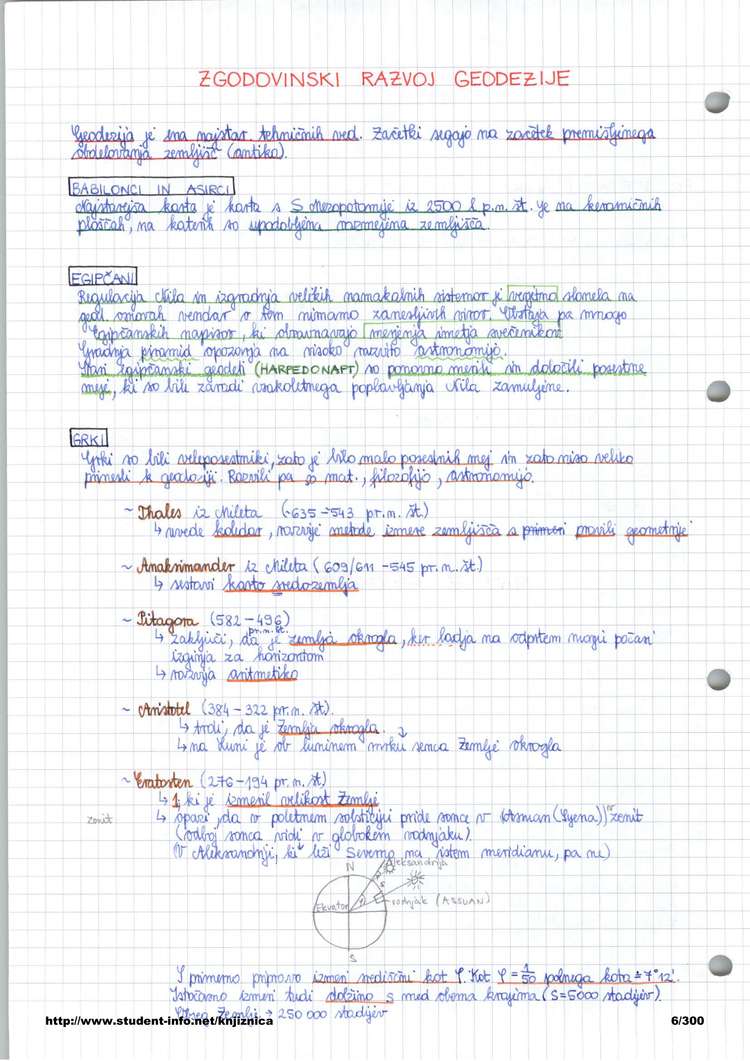 ZGODOVINSKI RAZVOJ GEODEZIJE
Geodezija je ena najstar. tehničnih ved. Začetki segajo na začetek premišljenega
obdelovanja zemljišč (antika).
BABILONCI IN ASIRCI
Najstarejša karta je karta s S Mezopotamije iz 2500 l. p.n. št. je na keramičnih
ploščah, na katerih so upodobljena razmejena zemljišča.
EGIPČANI
Regulacija Nila in izgradnja velikih namakalnih sistemov je verjetno slonela na
geod. osnovah vendar o tem nimamo zanesljivih virov. Obstaja pa mnogo
egipčanskih napisov, ki obravnavajo merjenja imetja svečenikov
Gradnja piramid opozarja na visoko razvito astronomijo.
Stari egipčanski geodeti (HARPEDONAPT) so ponovno merili in določili posestne
meje, ki so bile zaradi vsakoletnega poplavljanja Nila zamuljene.
GRKI
Grki so bili veleposestniki, zato je bilo malo posestnih mej in zato niso veliko
prinesli k geodeziji. Razvili pa so mat., filozofijo, astronomijo.
~ Thales iz Mileta (-635 -543 pr.n. št.)
↳ uvede koledar, razvije metode izmere zemljišča s primeri pravili geometrije
~ Anaksimander iz Mileta (609/611 -545 pr. n. št.)
↳ sestavi karto sredozemlja
~ Pitagora (582 - 496)
pr. n. št.
↳ zaključi, da je zemlja okrogla, ker ladja na odprtem morju počasi
izginja za horizontom
↳ razvija aritmetiko
~ Aristotel (384 - 322 pr. n. št.)
↳ trdi, da je Zemlja okrogla.
↳ na Luni je ob luninem mrku senca Zemlje okrogla
~ Eratosten (276 - 194 pr. n. št.)
↳ 1, ki je izmeril velikost Zemlje
zenit ↳ opazi, da v poletnem solsticiju pride sonce v Asman (Syena) v zenit
(odboj sonca vidi v globokem vodnjaku).
(V Aleksandriji, ki leži severno na istem meridianu, pa ne)
N Aleksandrija
S
φ
Ekvator
vodnjak (ASSUAN)
S
S primerno pripravo izmeri središčni kot φ. Kot φ = 1/50 polnega kota = 7°12'.
Istočasno izmeri tudi dolžino s med obema krajema (S=5000 stadijev).
Obseg Zemlje → 250 000 stadijev
http://www.student-info.net/knjiznica
6/300